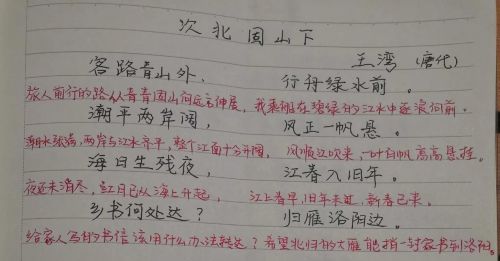 次北固山下
王湾 (唐代)
客路青山外， 行舟绿水前。
旅人前行的路从青青固山向远方伸展，我乘船在碧绿的江水中逐浪向前。
潮平两岸阔， 风正一帆悬。
潮水涨满，两岸与江水齐平，整个江面十分开阔， 风顺江吹来，一叶白帆高高悬挂。
海日生残夜， 江春入旧年。
夜还未消尽，红日已从海上升起， 江上春早，旧年未过，新春已来。
乡书何处达？ 归雁洛阳边。
给家人写的书信该用什么办法转达？希望北归的大雁能捎一封家书到洛阳。